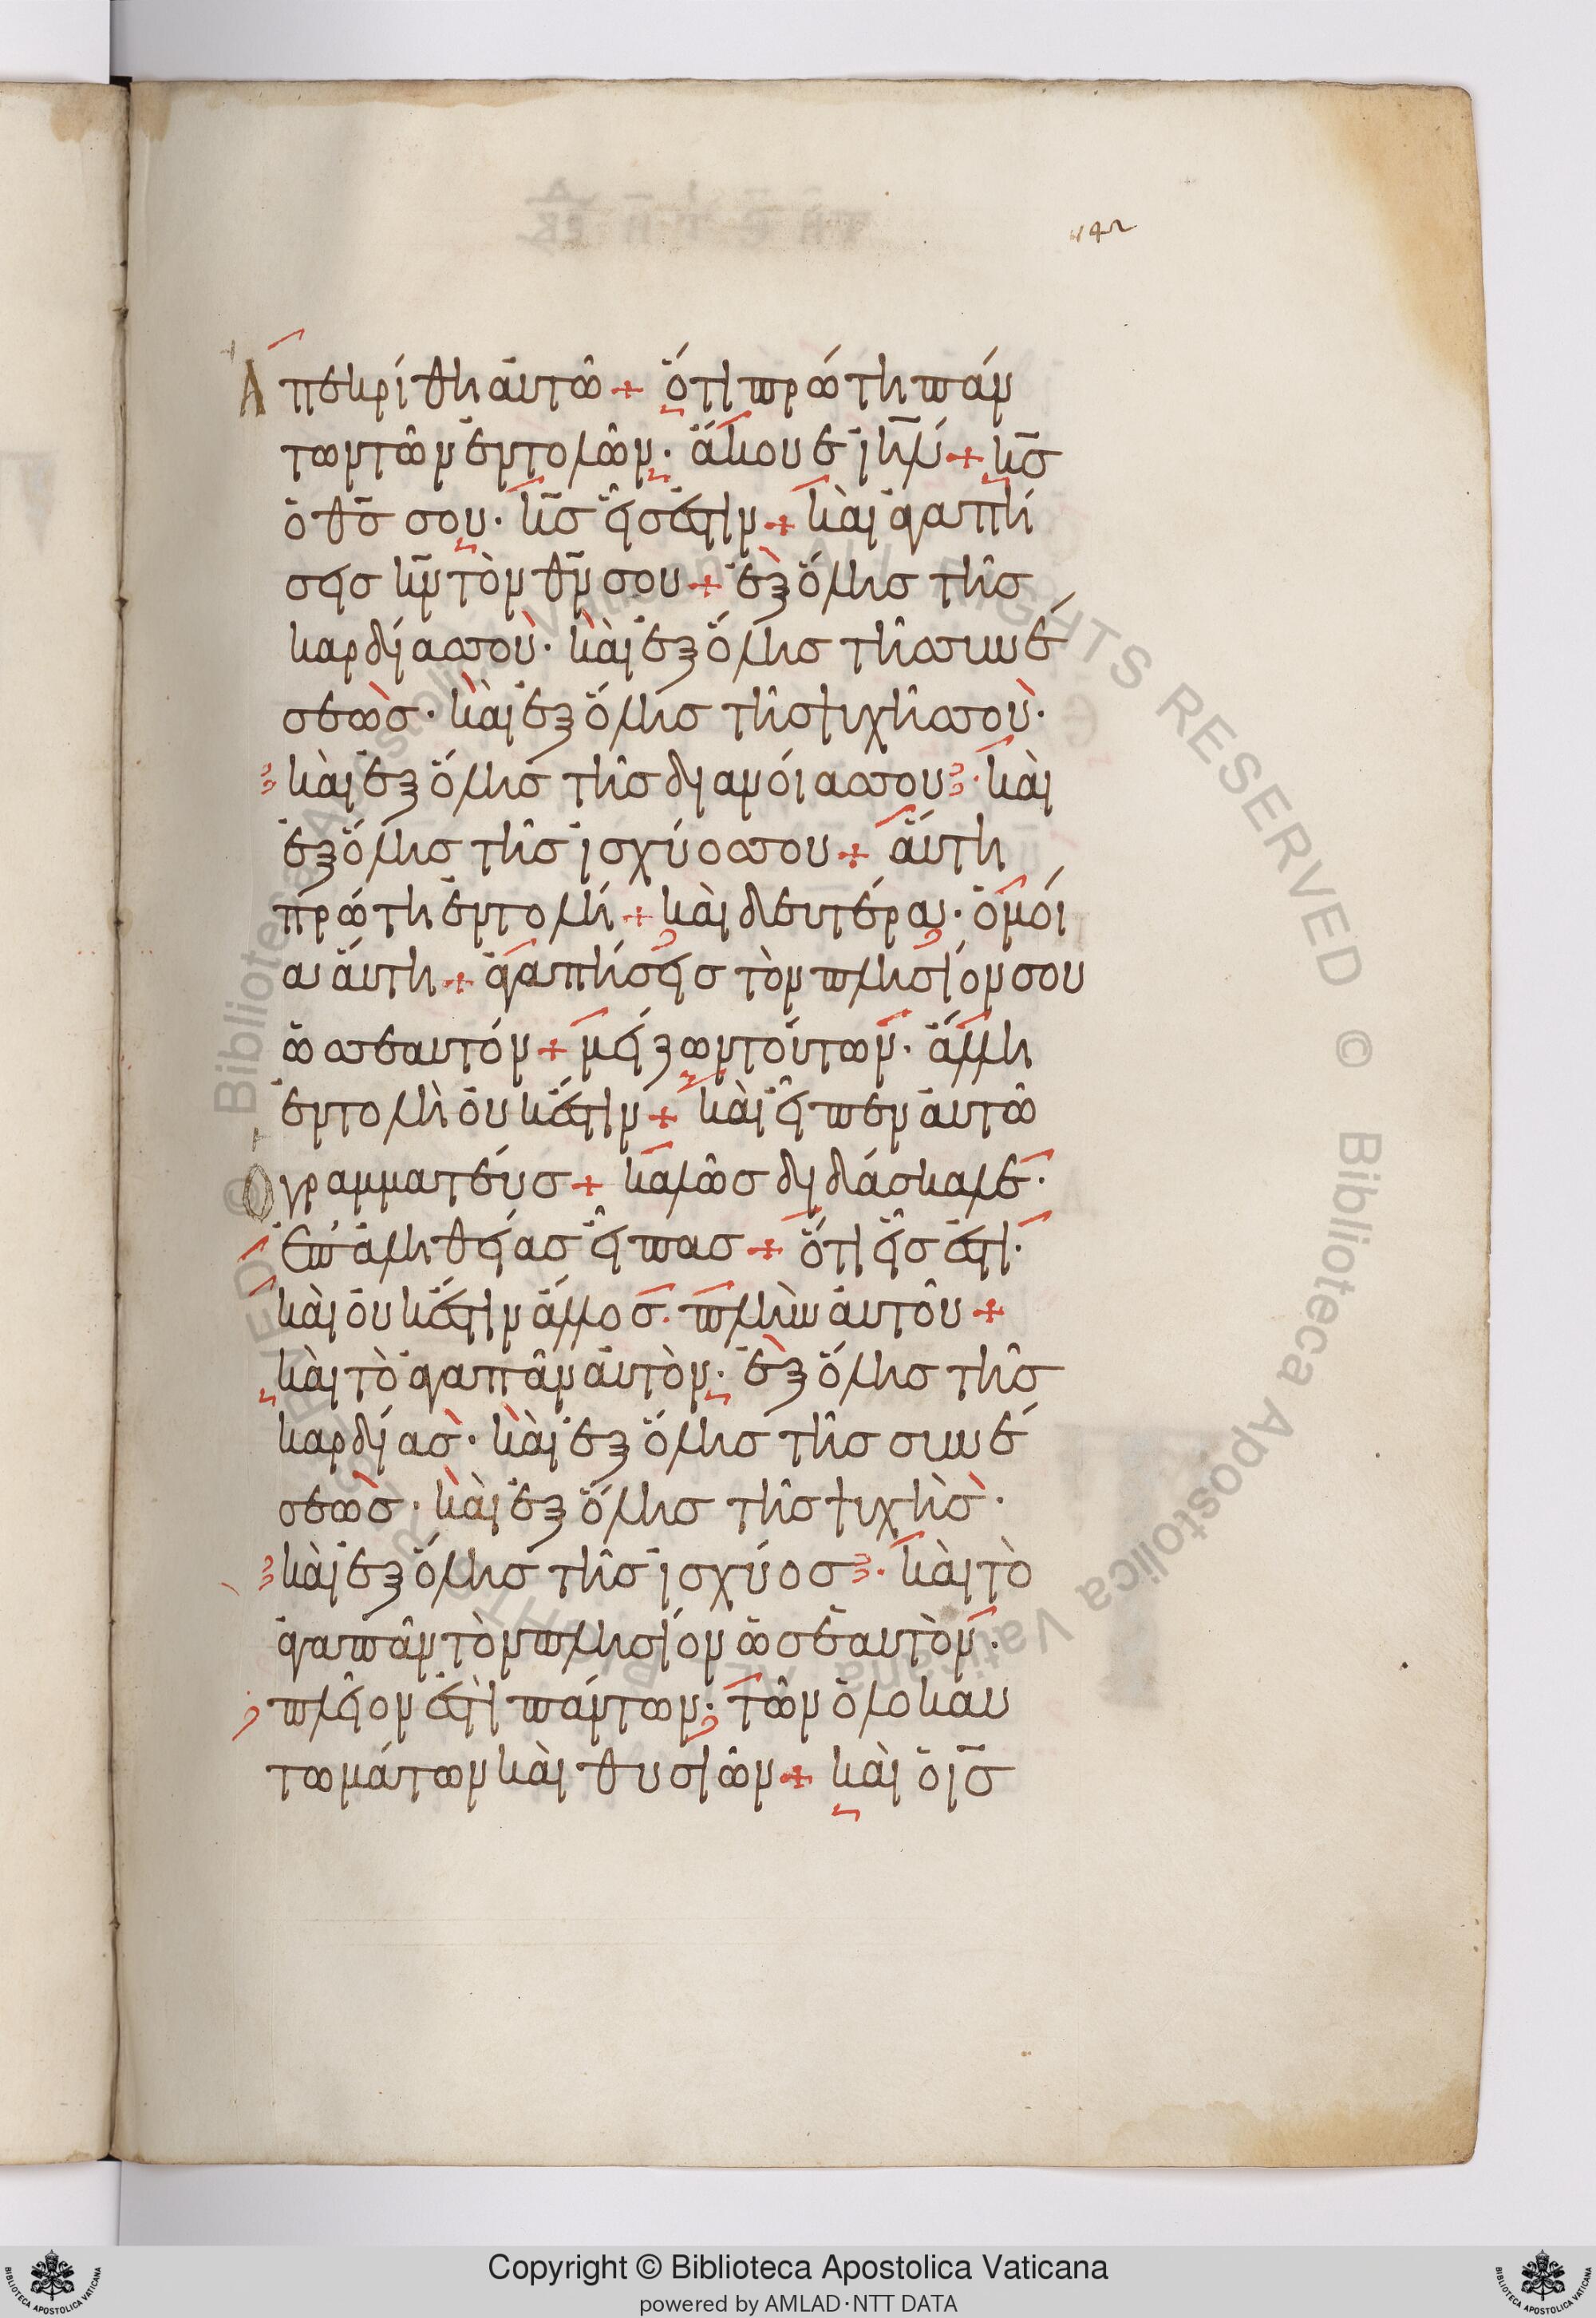 142
Ἀπεκρίθη αὐτῶ + ὅτι πρώτη πάν
των τῶν ἐντολῶν· ἄκουε ἰη̅λ + κ̅σ
ὁ θ̅σ σου· κ̅σ εἷσ ἐστιν + καὶ ἀγαπή
σεισ κ̅ν τὸν θ̅ν σου + ἐξ ὅλησ τῆσ
καρδίασ σοὺ· καὶ ἐξ ὅλησ τῆσ συνέ
σεὼσ· καὶ ἐξ ὅλησ τῆσ ψυχῆσ σοὺ·
καὶ ἐξ ὅλησ τῆσ διανοίασ σου· καὶ
ἐξ ὅλησ τῆσ ἰσχύοσ σου + αὕτη
πρώτη ἐντολή + καὶ δευτέρα· ὁμοί
α αὕτη + ἀγαπήσεισ τὸν πλησίον σου
ὡσ σεαυτόν + μείζων τούτων· ἄλλη
ἐντολὴ οὐκ ἔστιν + καὶ εἶπεν αὐτῶ
Ὁ γραμματεύσ + καλῶσ διδάσκαλε·
ἐπ' ἀληθείασ εἶπασ + ὅτι εἷσ ἐστι·
καὶ οὐκ ἔστιν ἄλλοσ· πλὴν αὐτοῦ +
καὶ τὸ ἀγαπᾶν αὐτὸν· ἐξ ὅλησ τῆσ
καρδίασ· καὶ ἐξ ὅλησ τῆσ συνέ
σεὼσ· καὶ ἐξ ὅλησ τῆσ ψυχὴσ·
καὶ ἐξ ὅλησ τῆσ ἰσχύοσ· καὶ τὸ
ἀγαπᾶν τὸν πλησίον ὡσ ἑαυτὸν·
πλεῖον ἐστὶ πάντων· τῶν ὁλοκαυ
τωμάτων καὶ θυσιῶν + καὶ ὁ ι̅σ
© Biblioteca Apostolica Vaticana ALL RIGHTS RESERVED © Biblioteca Apostolica Vaticana ALL RIGHTS RESERVED
Copyright © Biblioteca Apostolica Vaticana
powered by AMLAD·NTT DATA
BIBLIOTECA APOSTOLICA VATICANA
BIBLIOTECA APOSTOLICA VATICANA